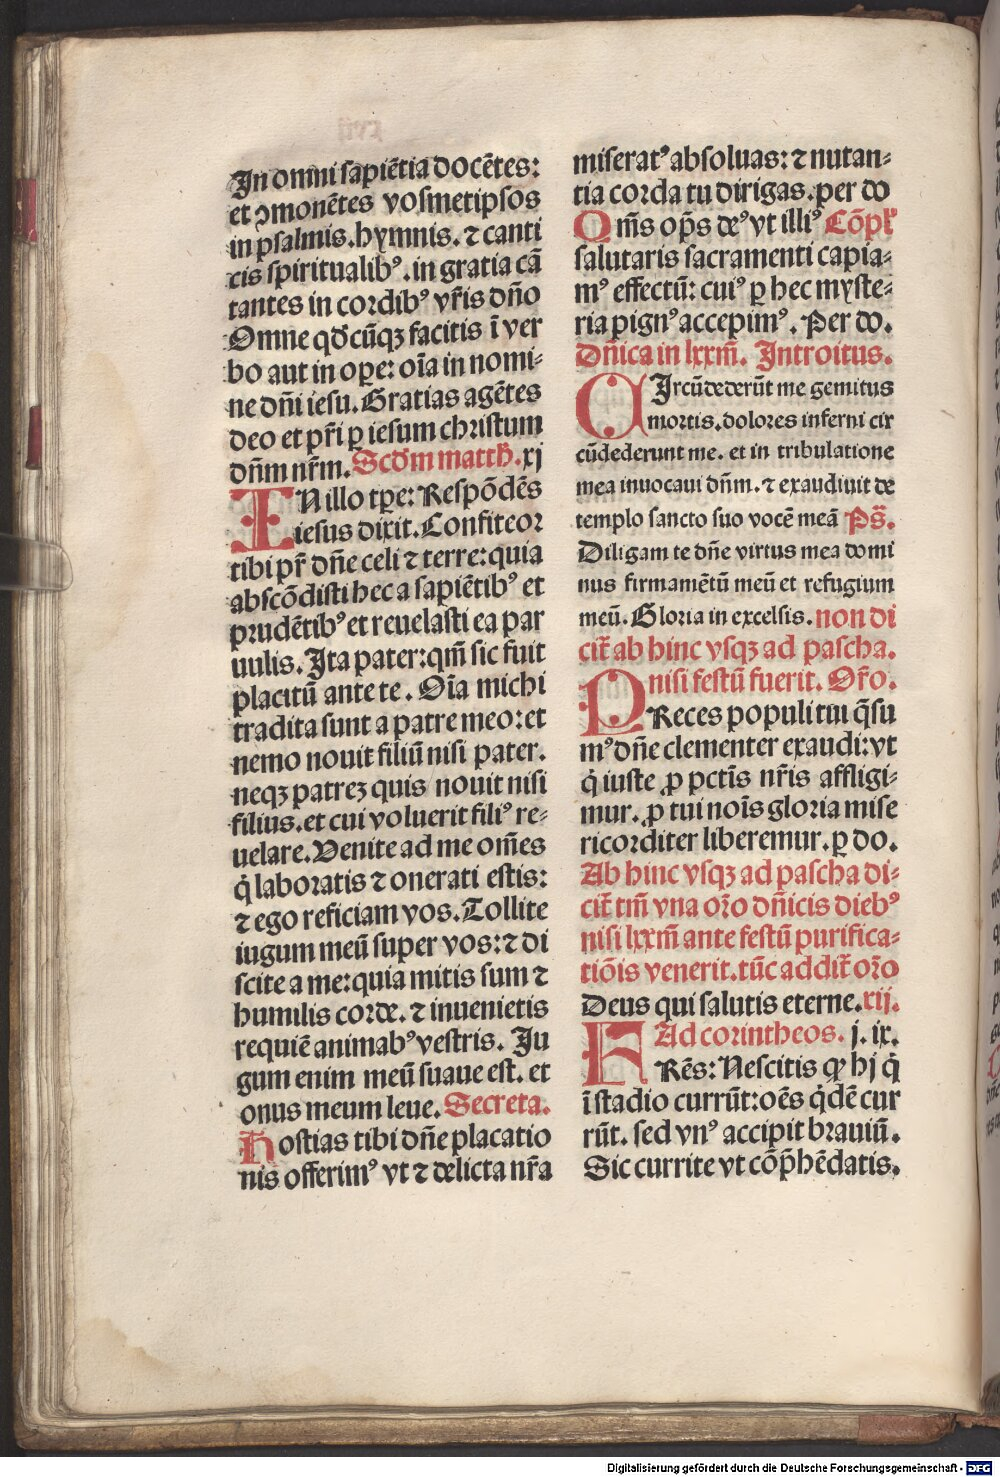 In omni sapiētia docētes:
et ꝯmonētes vosmetipsos
in psalmis.hymnis.⁊ canti
cis spiritualib⁹.in gratia cā
tantes in cordib⁹ vr̄is dn̄o
Omne qd̄cūqꝫ facitis ī ver
bo aut in oꝑe: oīa in nomi⸗
ne dn̄i iesu.Gratias agētes
deo et pr̄i ꝑ iesum christum
dn̄m nr̄m.Scd̄m matth̄.xj
IN illo tꝑe: Respōdēs
iesus dixit.Confiteor
tibi pr̄ dn̄e celi ⁊ terre:quia
abscōdisti hec a sapiētib⁹ et
prudētib⁹ et reuelasti ea par
uulis.Ita pater:qm̄ sic fuit
placitū ante te. Oīa michi
tradita sunt a patre meo:et
nemo nouit filiū nisi pater.
neqꝫ patreꝫ quis nouit nisi
filius.et cui voluerit fili⁹ re⸗
uelare.Venite ad me om̄es
q̇ laboratis ⁊ onerati estis:
⁊ ego reficiam vos.Tollite
iugum meū super vos:⁊ di
scite a me:quia mitis sum ⁊
humilis corde.⁊ inuenietis
requiē animab⁹ vestris. Iu
gum enim meū suaue est. et
onus meum leue.Secreta.
Hostias tibi dn̄e placatio
nis offerim⁹ vt ⁊ delicta nr̄a
miserat⁹ absoluas:⁊ nutan⸗
tia corda tu dirigas.per do
Qm̄s op̄s de⁹ vt illi⁹ Cōpl̄
salutaris sacramenti capia⸗
m⁹ effectū: cui⁹ ꝑ hec myste⸗
ria pign⁹ accepim⁹. Per do.
Dn̄ica in lxxm̄. Introitus.
CIrcūdederūt me gemitus
mortis.dolores inferni cir
cūdederunt me. et in tribulatione
mea inuocaui dn̄m.⁊ exaudiuit de
templo sancto suo vocē meā Ps̄.
Diligam te dn̄e virtus mea domi
nus firmamētū meū et refugium
meū.Gloria in excelsis.non di
cit̄ ab hinc vsqꝫ ad pascha.
nisi festū fuerit. Or̄o.
PReces populi tui q̄su
m⁹ dn̄e clementer exaudi:vt
q̇ iuste ꝓ pctīs nr̄is affligi⸗
mur.ꝓ tui noīs gloria mise
ricorditer liberemur.ꝑ do.
Ab hinc vsqꝫ ad pascha di⸗
cit̄ tm̄ vna or̄o dn̄icis dieb⁹
nisi lxxm̄ ante festū purifica⸗
tiōis venerit.tūc addit̄ or̄o
Deus qui salutis eterne.xij.
Ad corintheos. j. ix.
FRēs: Nescitis ꝙ hj q̇
ī stadio currūt:oēs q̇dē cur
rūt. sed vn⁹ accipit brauiū.
Sic currite vt cōp̄hēdatis.
Digitalisierung gefördert durch die Deutsche Forschungsgemeinschaft - DFG